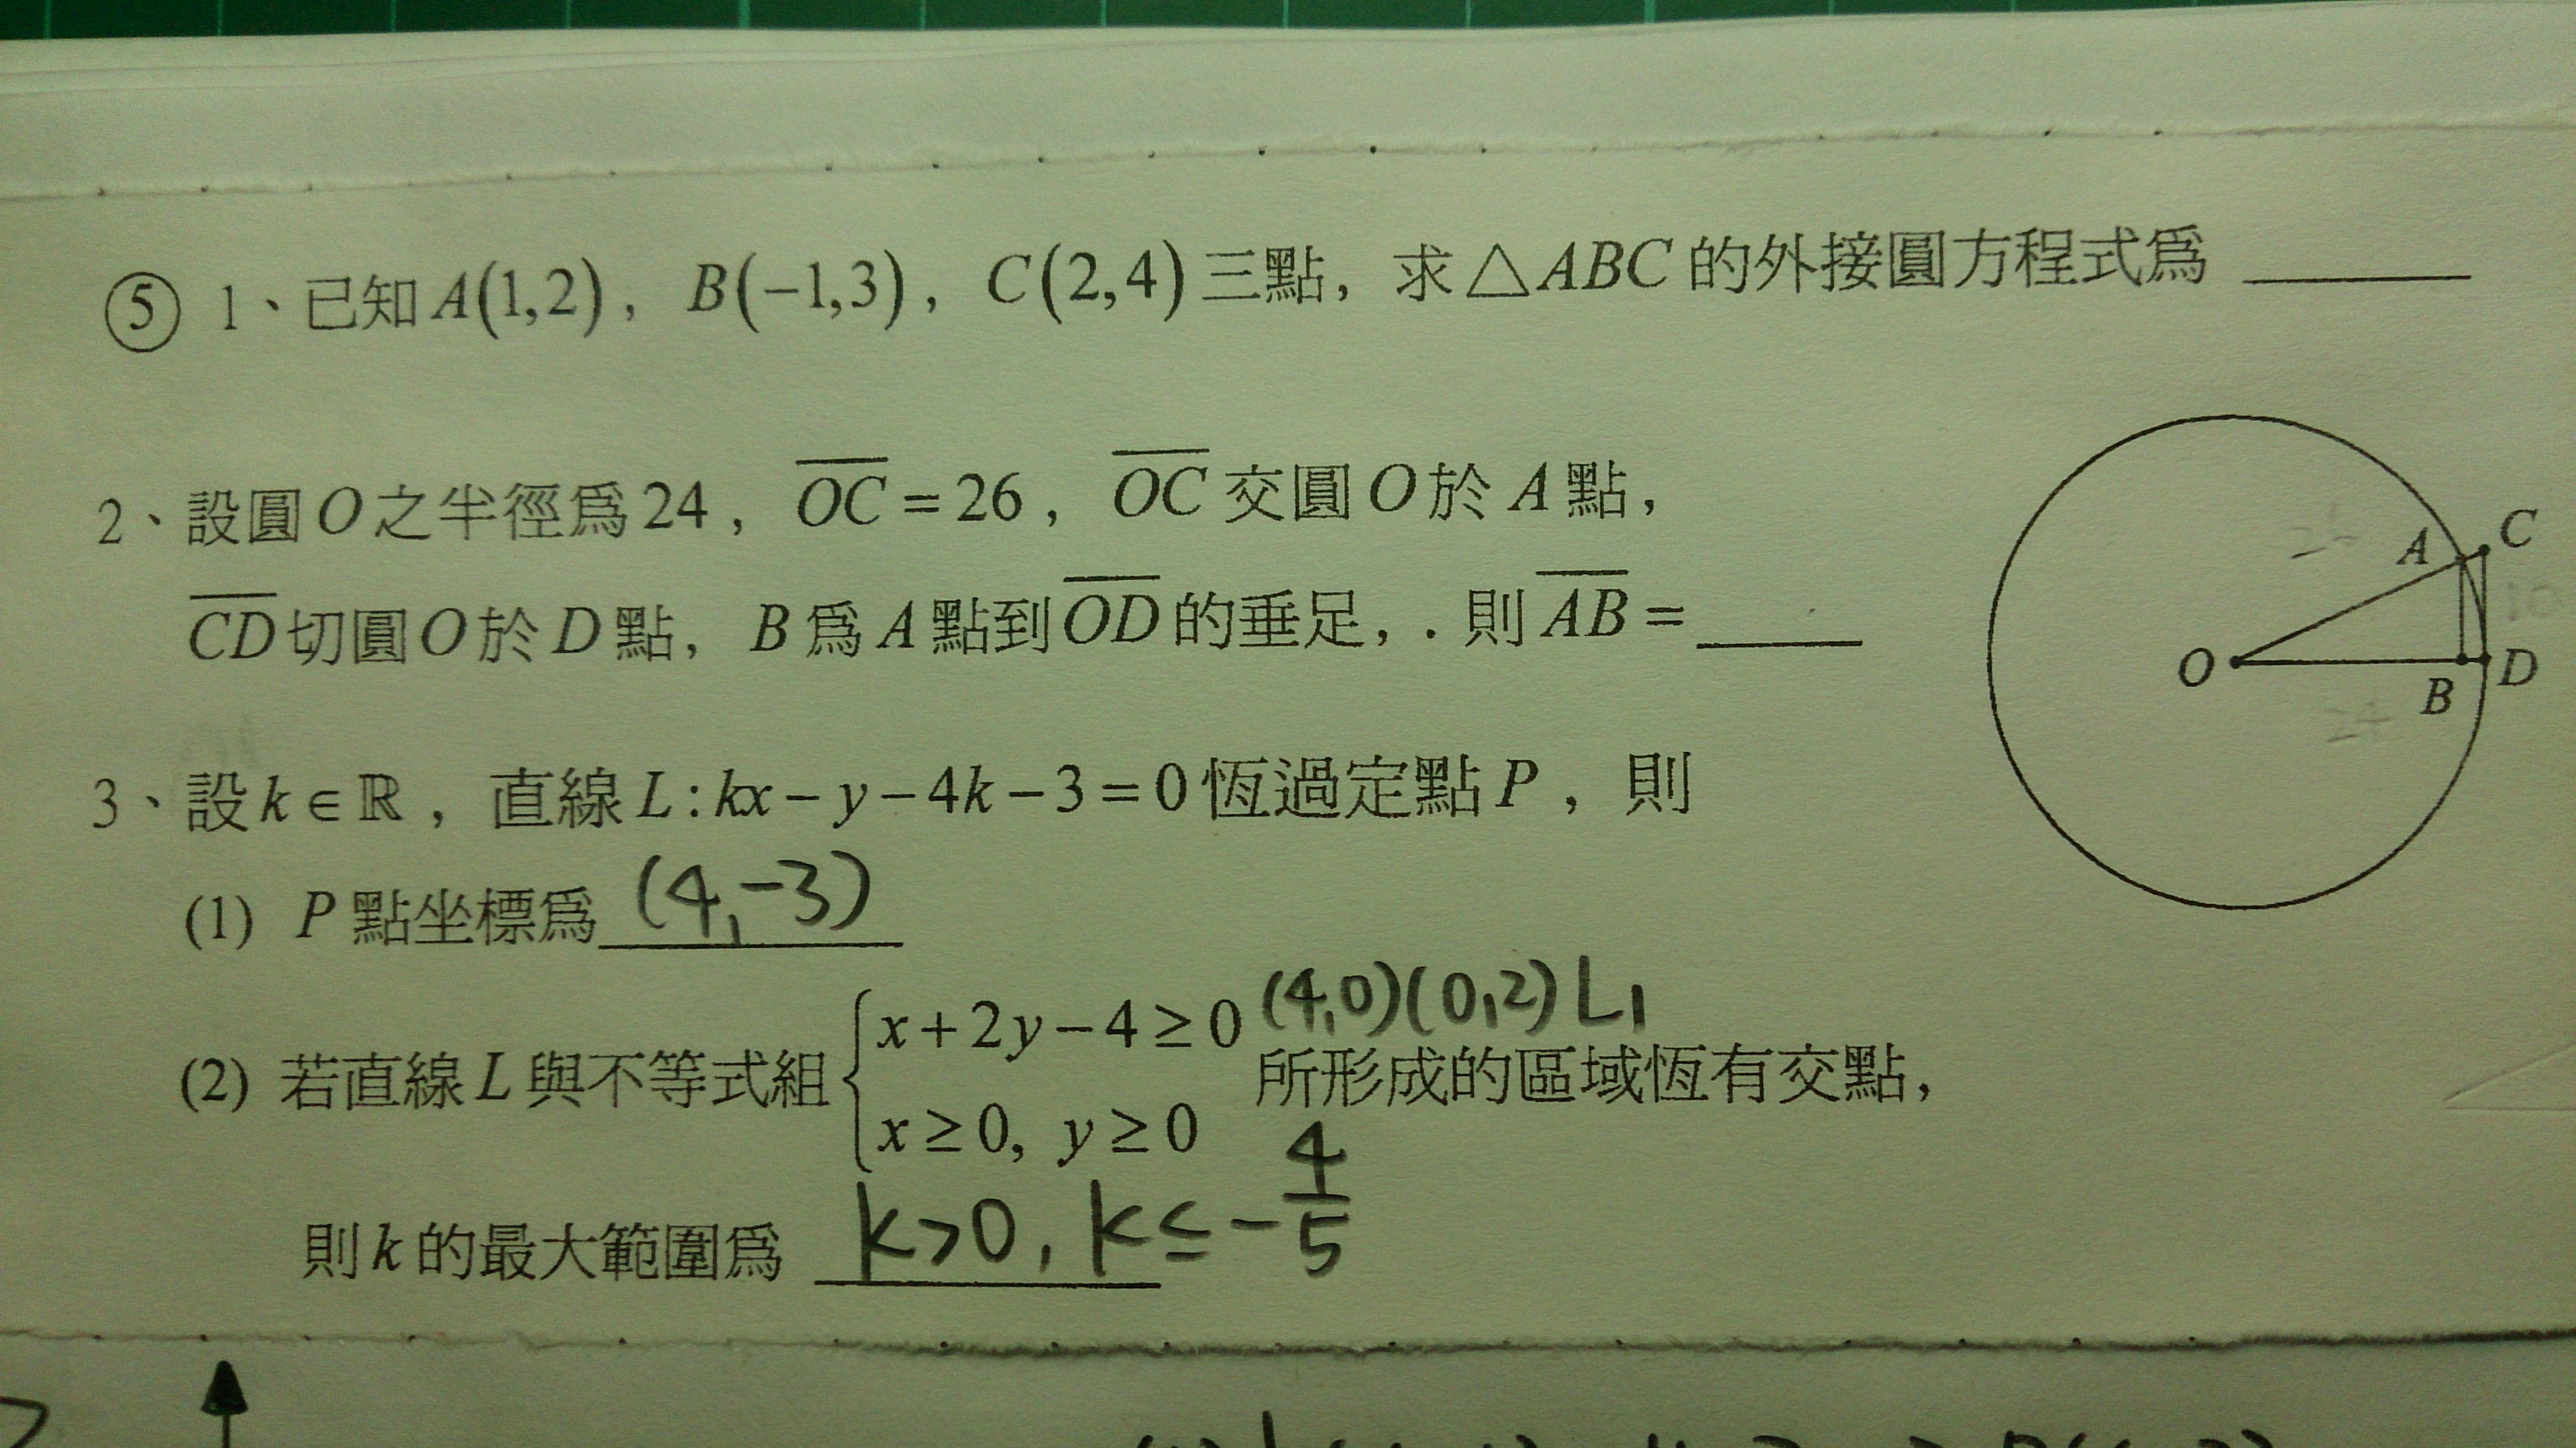 ⑤ 1、已知A(1,2)，B(−1,3)，C(2,4)三點，求△ABC的外接圓方程式為 ______
2、設圓O之半徑為24，OC=26，OC交圓O於A點，
CD切圓O於D點，B為A點到OD的垂足，. 則AB=______
A
C
10
O
B
D
24
3、設k∈ℝ，直線L:kx−y−4k−3=0恆過定點P，則
(1) P點坐標為 (4,−3)
(2) 若直線L與不等式組{x+2y−4≥0 (4,0)(0,2) L1
x≥0, y≥0 所形成的區域恆有交點，
則k的最大範圍為 k>0, k≤−4/5